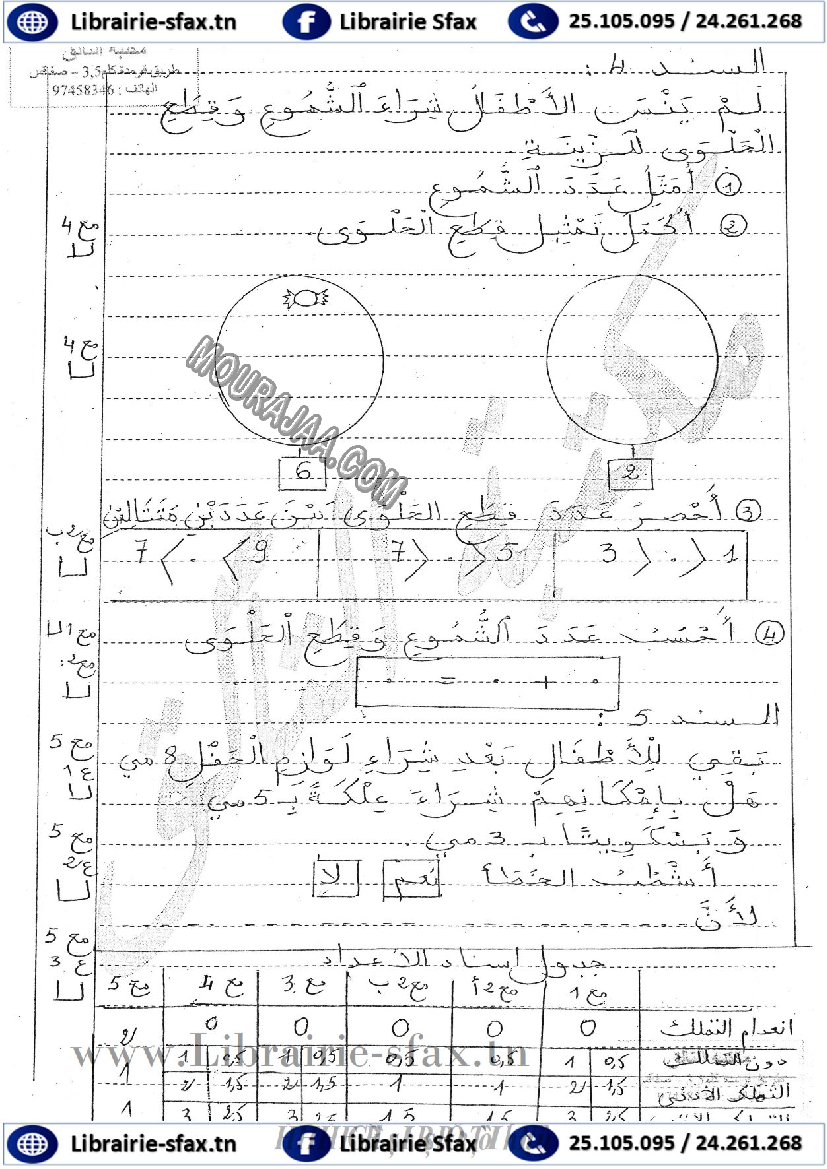 Librairie-sfax.tn Librairie Sfax 25.105.095 / 24.261.268
طريق قرمدة كلم 3,5 - صفاقس
الهاتف : 97458346
السند 4 :
لَمْ يَنْسَ الأَطْفَالُ شِرَاءَ الشُّمُوعِ وَقِطَعِ
الْحَلْوَى للزِّينَةِ
① أُمَثِّلُ عَدَدَ الشُّمُوعِ
② أُكْمِلُ تَمْثِيلَ قِطَعِ الْحَلْوَى
مع 4
مع 4
MOURAJAA.COM
6 2
③ أَحْصُرُ عَدَدَ قِطَعِ الحَلْوَى بَيْنَ عَدَدَيْنِ مُتَتَالِيَيْنِ
مع 2 ب
7 〈 . 〈 9 7 〉 . 〉 5 3 〉 . 〉 1
④ أَحْسُبُ عَدَدَ الشُّمُوعِ وَقِطَعِ الحَلْوَى
مع 1
مع 2
. = . + .
السند 5 :
بَقِيَ لِلْأَطْفَالِ بَعْدَ شِرَاءِ لَوَازِمِ الْحَفْلِ 8 مي
هَلْ بِإِمْكَانِهِمْ شِرَاءَ عِلْكَةً بِـ 5 مي
وَ بَسْكَوِيتًا بـ 3 مي .
أَشْطُبُ الخَطَأَ نَعَم لَا
لأَنَّ
مع 5
ع 1
مع 5
ع 2
مع 5
ع 3
جدول إسناد الأعداد
مع 1 مع 2 أ مع 2 ب مع 3 مع 4 مع 5
انعدام التملك 0 0 0 0 0
دون التملك 0,5 1 0,5 0,5 0,5 1 0,5 1
التملك الأدنى 1,5 2 1 1 1,5 2 1,5 2
2,5 3 1,5 1,5 2,5 3 2,5 3
www.Librairie-sfax.tn
Librairie-sfax.tn Librairie Sfax 25.105.095 / 24.261.268